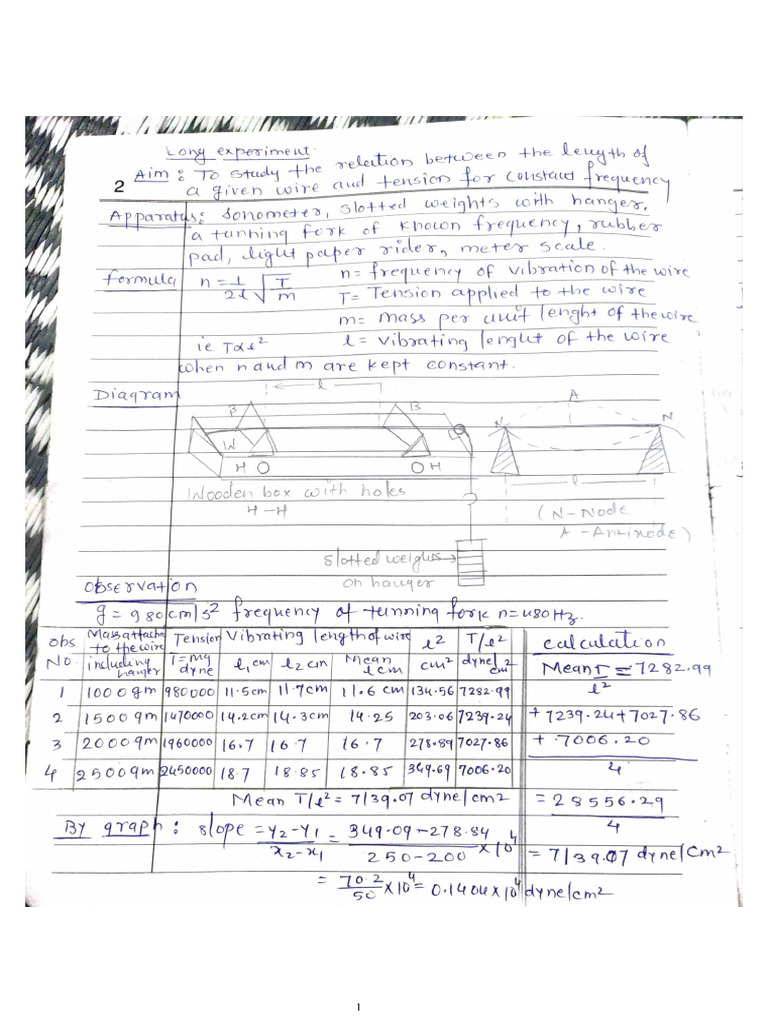 Long experiment.
2 Aim: To study the relation between the length of
a given wire and tension for constant frequency
Apparatus: Sonometer, slotted weights with hanger,
a tunning fork of known frequency, rubber
pad, light paper rider, meter scale.
formula n = 1/2l √T/m n = frequency of vibration of the wire
T = Tension applied to the wire
m = mass per unit lenght of the wire
ie T∝l² l = vibrating lenght of the wire
when n and m are kept constant.
Diagram
l
B B A
N N
W
H H
l
Wooden box with holes
H-H
(N-Node
A-Antinode)
Slotted weights
on hanger
Observation
g = 980 cm/s² frequency of tunning fork n = 480 Hz.
obs No. Mass attach to the wire including hanger Tension T=mg dyne Vibrating length of wire l1 cm l2 cm Mean l cm l² cm² T/l² dyne/cm² calculation
Mean T/l² = 7282.99
1 1000 gm 980000 11.5cm 11.7cm 11.6 cm 134.56 7282.99
2 1500 gm 1470000 14.2cm 14.3cm 14.25 203.06 7239.24 + 7239.24 + 7027.86
3 2000 gm 1960000 16.7 16.7 16.7 278.89 7027.86 + 7006.20
4
4 2500 gm 2450000 18.7 18.85 18.85 349.69 7006.20
Mean T/l² = 7139.07 dyne/cm2 = 28556.29/4
By graph: slope = y2-y1/x2-x1 = 349.09-278.84/250-200 × 10⁴ = 7139.07 dyne/cm²
= 70.2/50 × 10⁴ = 0.1404 × 10⁴ dyne/cm²
1